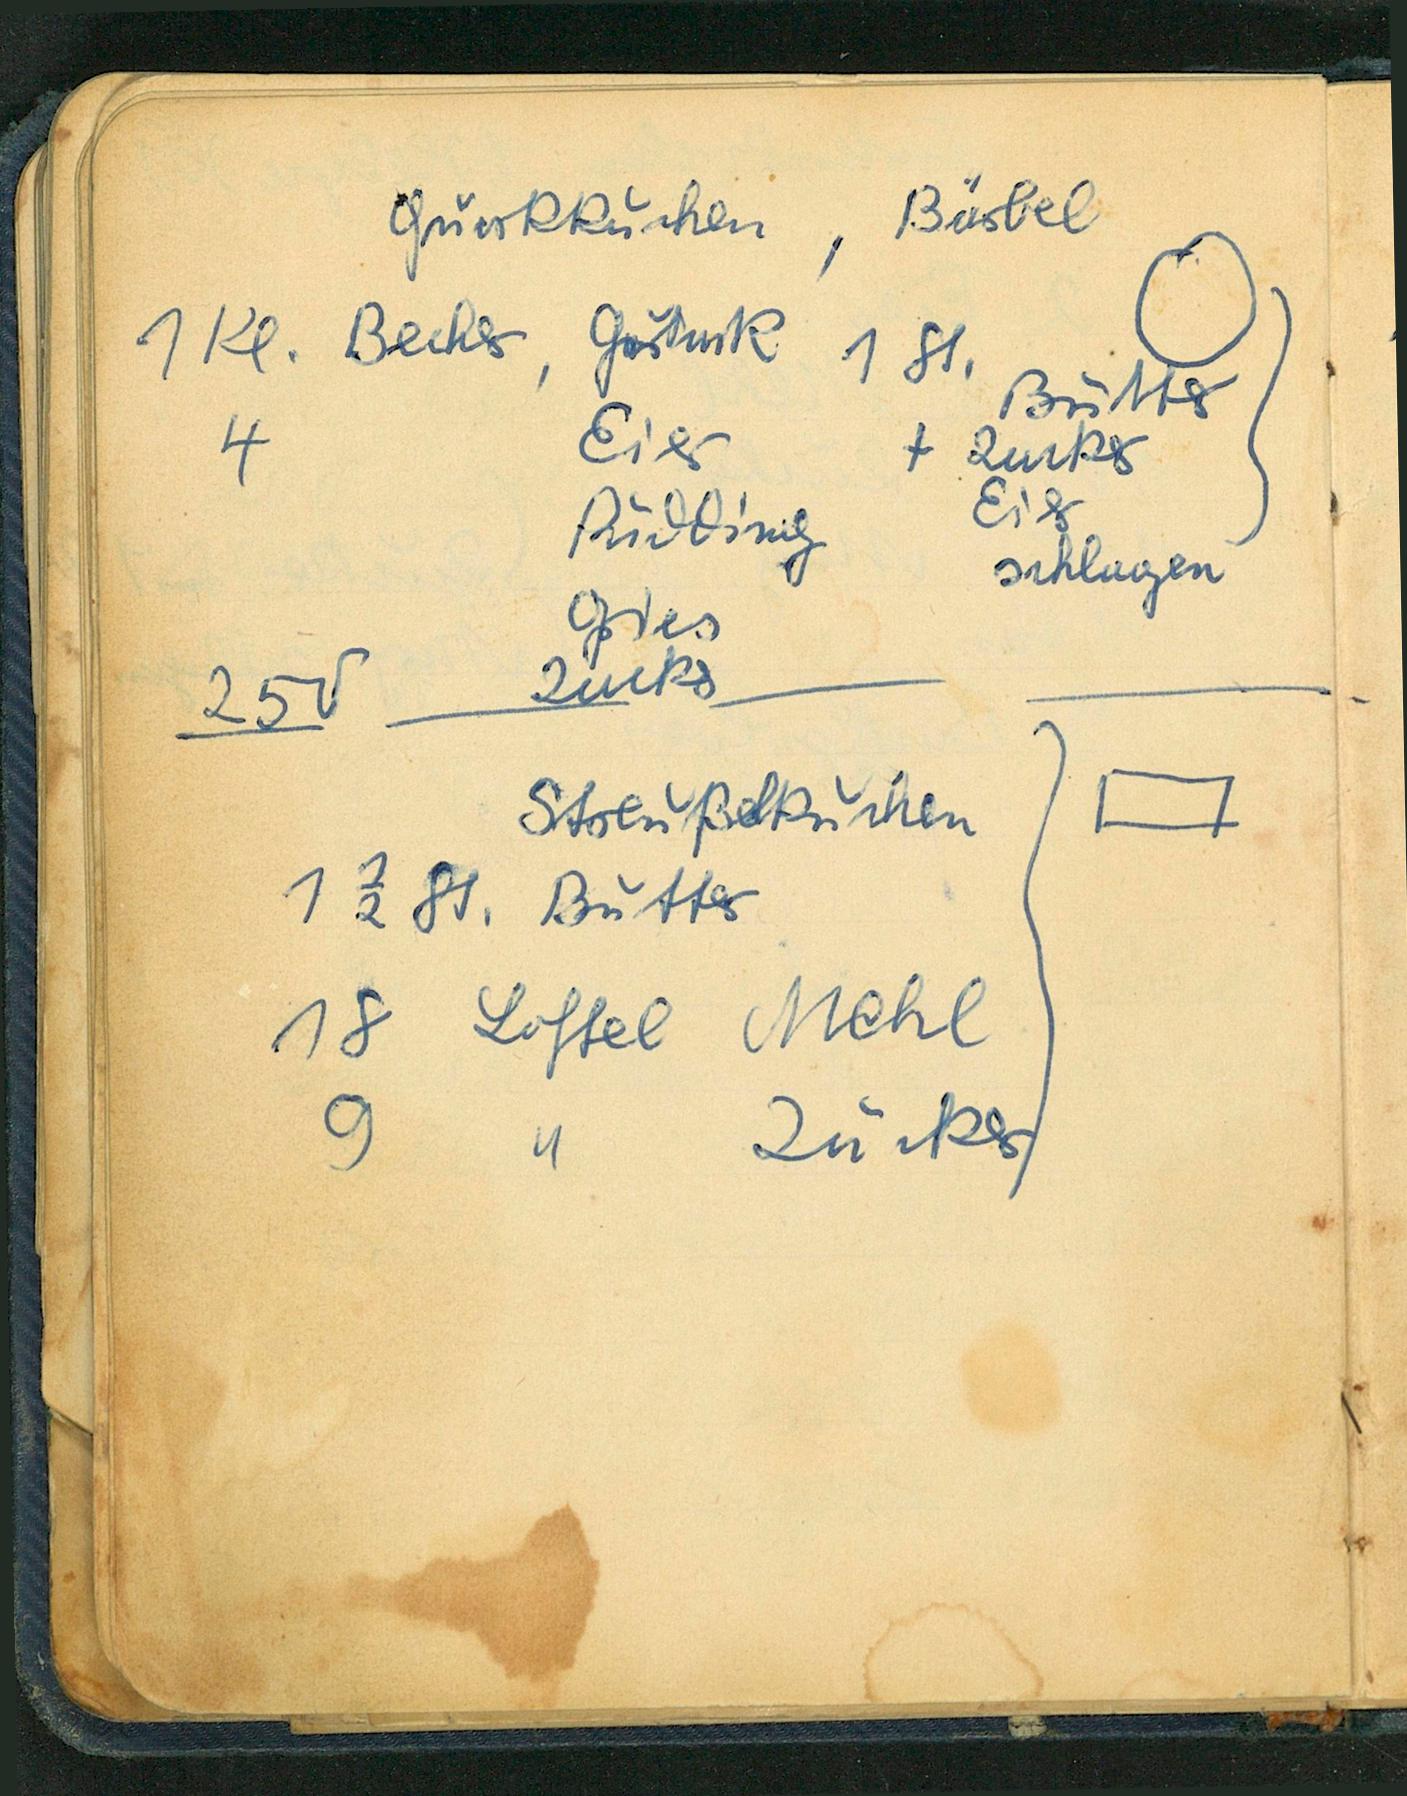 Quarkkuchen, Bärbel
1 Kl. Becher, Quark 1 St.
Butter
4 Eier + Zucker
Pudding Eier
schlagen
Gries
250 Zucker
Streußelkuchen
1 1/2 St. Butter
18 Löffel Mehl
9 " Zucker